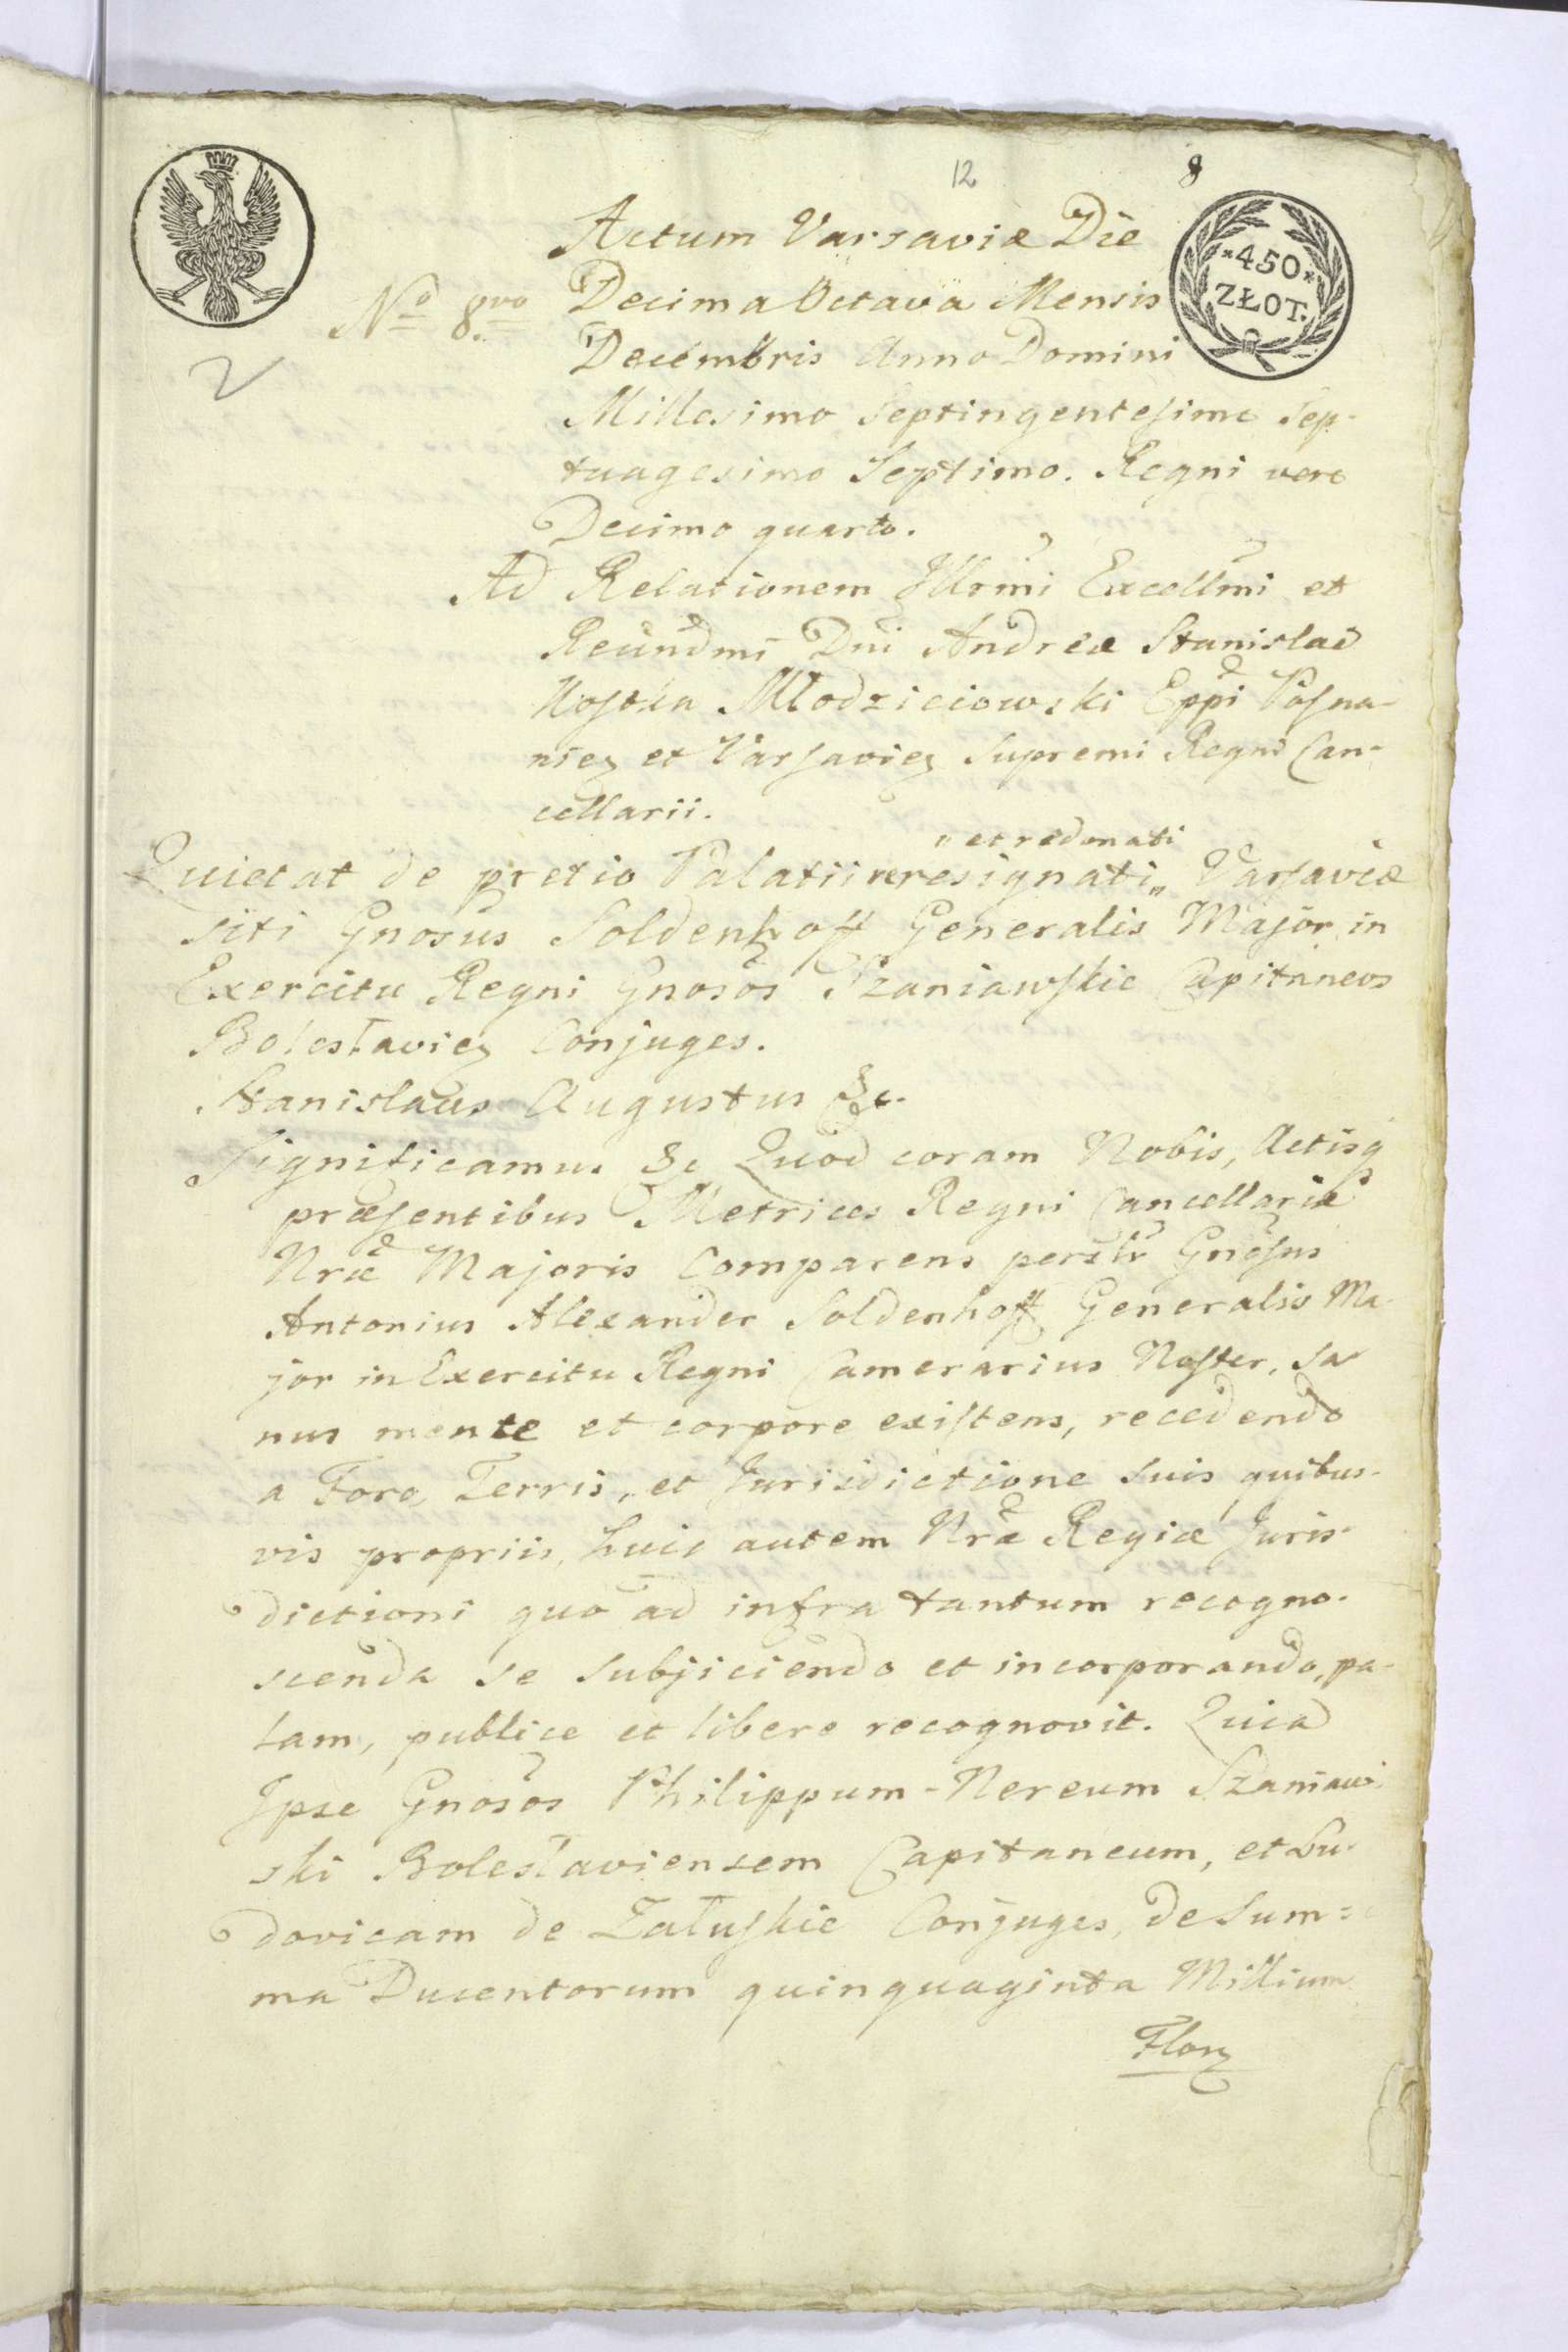 12
8
*450*
ZŁOT.
No 8vo
Actum Varsaviæ Die
Decima Octava Mensis
Decembris Anno Domini
Millesimo Septingentesimo Sep-
tuagesimo Septimo. Regni vero
Decimo quarto.
Ad Relationem Illrmi Excellmi et
Reundmi Dni Andreæ Stanislai
Kostka Młodzieiowski Eppi Posna-
nieȝ et Varsavieȝ Supremi Regni Can-
cellarii.
„ et redonati
Quietat de pretio Palatii reresignati „ Varsaviæ
siti Gnosus Soldenhoff Generalis Major in
Exercitu Regni Gnosos Szaniawskie Capitaneos
Bolesłavieȝ Conjuges.
Stanislaus Augustus &c.
Significamus &c Quod coram Nobis, Actisq
præsentibus Metrices Regni Cancellariæ
Nræ Majoris Comparens persltr Gnosus
Antonius Alexander Soldenhoff Generalis Ma-
jor in Exercitu Regni Camerarius Noster, Sa
nus mente et corpore existens, recedendo
a Foro, Terris, et Jurisdictione suis quibus-
vis propriis, huic autem Nræ Regiæ Juris-
dictioni quo ad infra tantum recogno-
scenda se subjiciendo et incorporando, pa-
lam, publice et libere recognovit. Quia
Ipse Gnosos Philippum-Nereum Szaniaw-
ski Bolesłaviensem Capitaneum, et Lu-
dovicam de Załuskie Conjuges, de Sum=
ma Ducentorum quinquaginta Millium
Florȝ